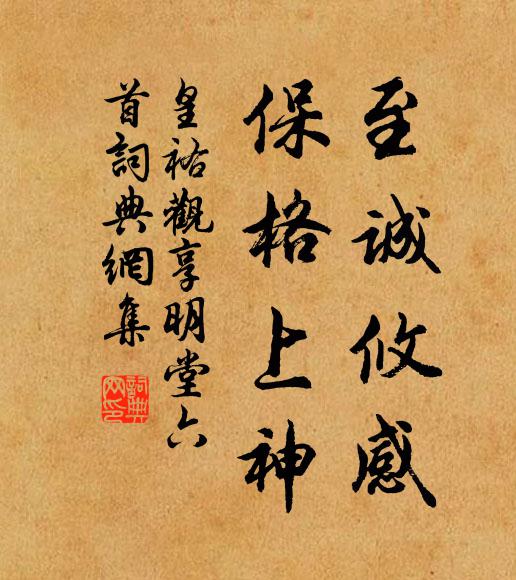 至誠攸感
保格上神
皇祐觀享明堂六
首詞典網集
詞典網印